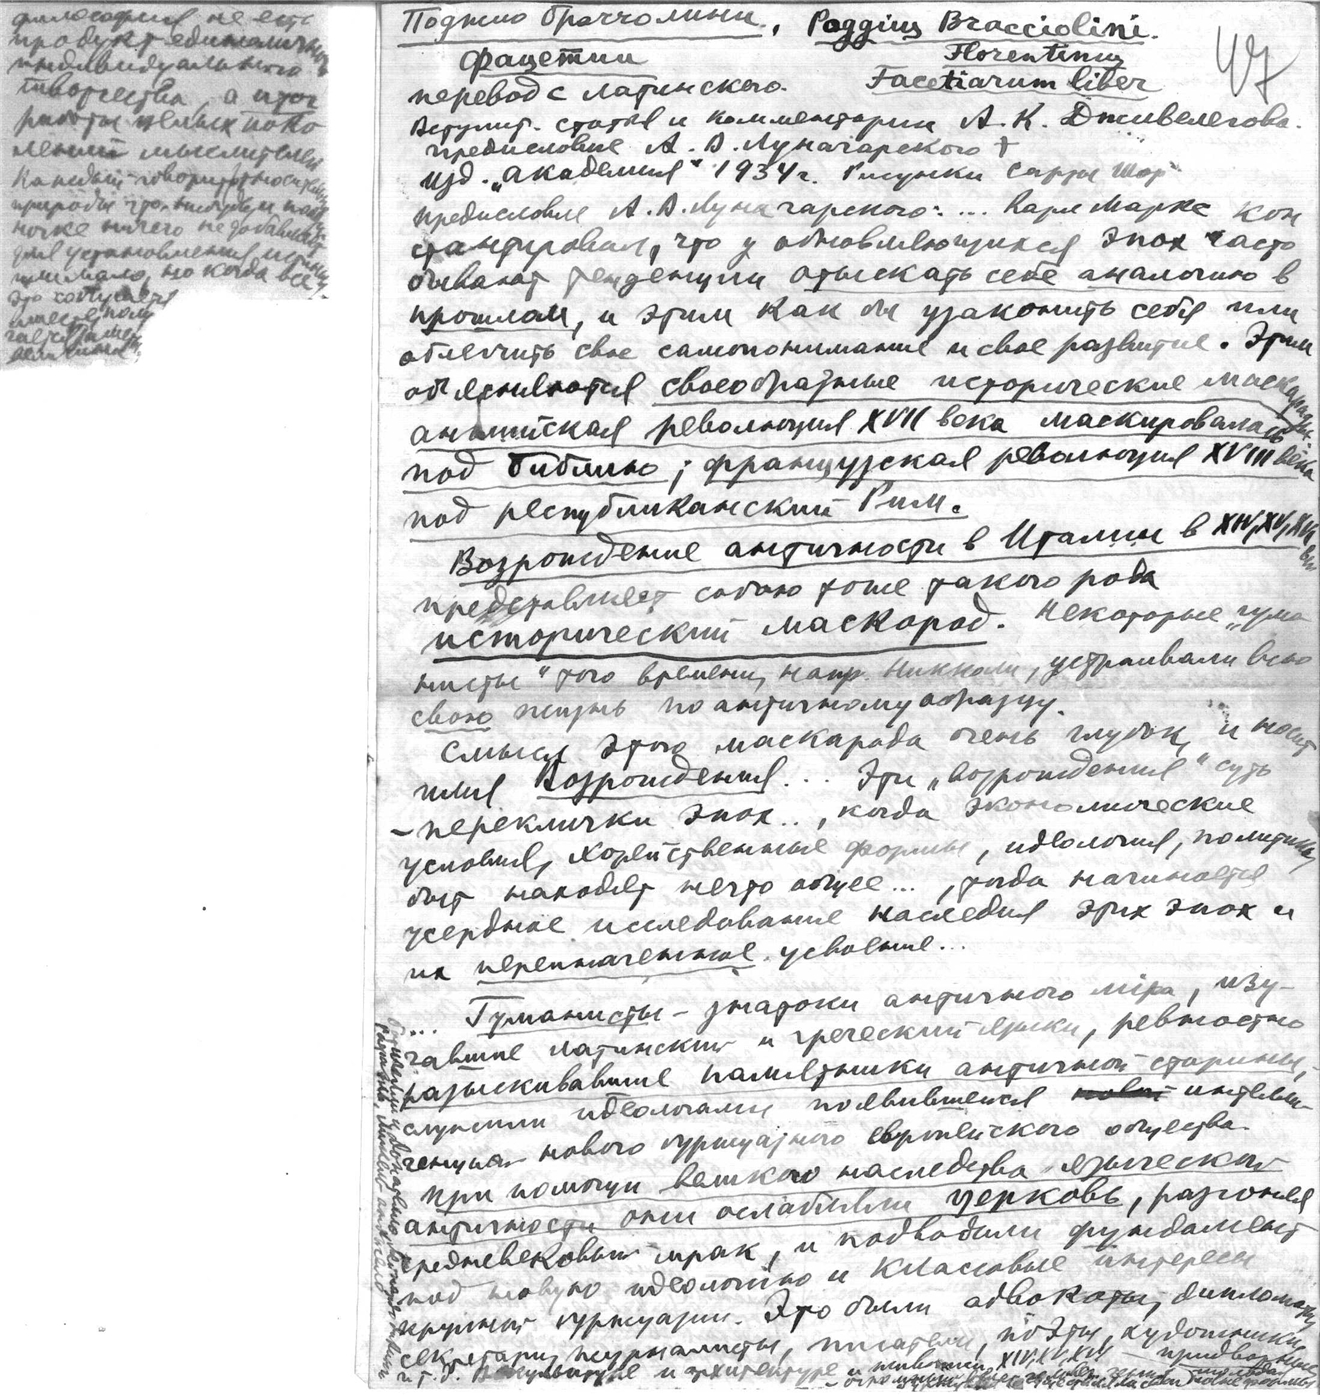 философия не есть
продукт единоличного
индивидуального
творчества, а итог
работы целых поко
лений мыслителей
Каждый говорит относительно
природы что-нибудь и пооди
ночке ничего не добавляет
для установления истины
или мало, но когда все
это собирается
вместе, полу
чается
величина
Поджио Браччолини., Poggius Bracciolini.
47
Фацетии Florentinus
перевод с латинского. Facetiarum liber
Вступит. статья и комментарии А. К. Дживелегова.
предисловие А. В. Луначарского †
изд. „Академия" 1934 г. Рисунки Сарры Шор
предисловие А. В. Луначарского: ... Карл Маркс кон
статировал, что у обновляющихся эпох часто
бывают тенденции отыскать себе аналогию в
прошлом, и этим как бы узаконить себя или
облегчить свое самопонимание и свое развитие. Этим
объясняются своеобразные исторические маскарады.
английская революция XVII века маскировалась
под библию; французская революция XVIII века
под республиканский Рим.
Возрождение античности в Италии в XIV, XV, XVI век
представляет собою тоже такого рода
исторический маскарад. Некоторые „гума
нисты" того времени, напр. Никколи, устраивали всю
свою жизнь по античному образцу.
Смысл этого маскарада очень глубок, и носит
имя Возрождения... Эти „возрождения" суть
– переклички эпох.., когда экономические
условия, хозяйственные формы, идеология, политика,
быт находят нечто общее..., тогда начинается
усердное исследование наследия этих эпох и
их переиначенное усвоение...
... Гуманисты – знатоки античного мiра, изу-
чавшие латинский и греческий языки, ревностно
разыскивавшие памятники античной старины,
служили идеологами появившейся интелли-
генции нового буржуазного европейского общества.
При помощи великого наследства языческой
античности они ослабляли церковь, разгоняя
средневековый мрак, и подводили фундамент
под новую идеологию и классовые интересы
крупной буржуазии. Это были адвокаты, дипломаты,
секретари, журналисты, писатели, поэты, художники,
и т. д. В скульптуре и архитектуре и живописи XIV, XV, XVI – придворные